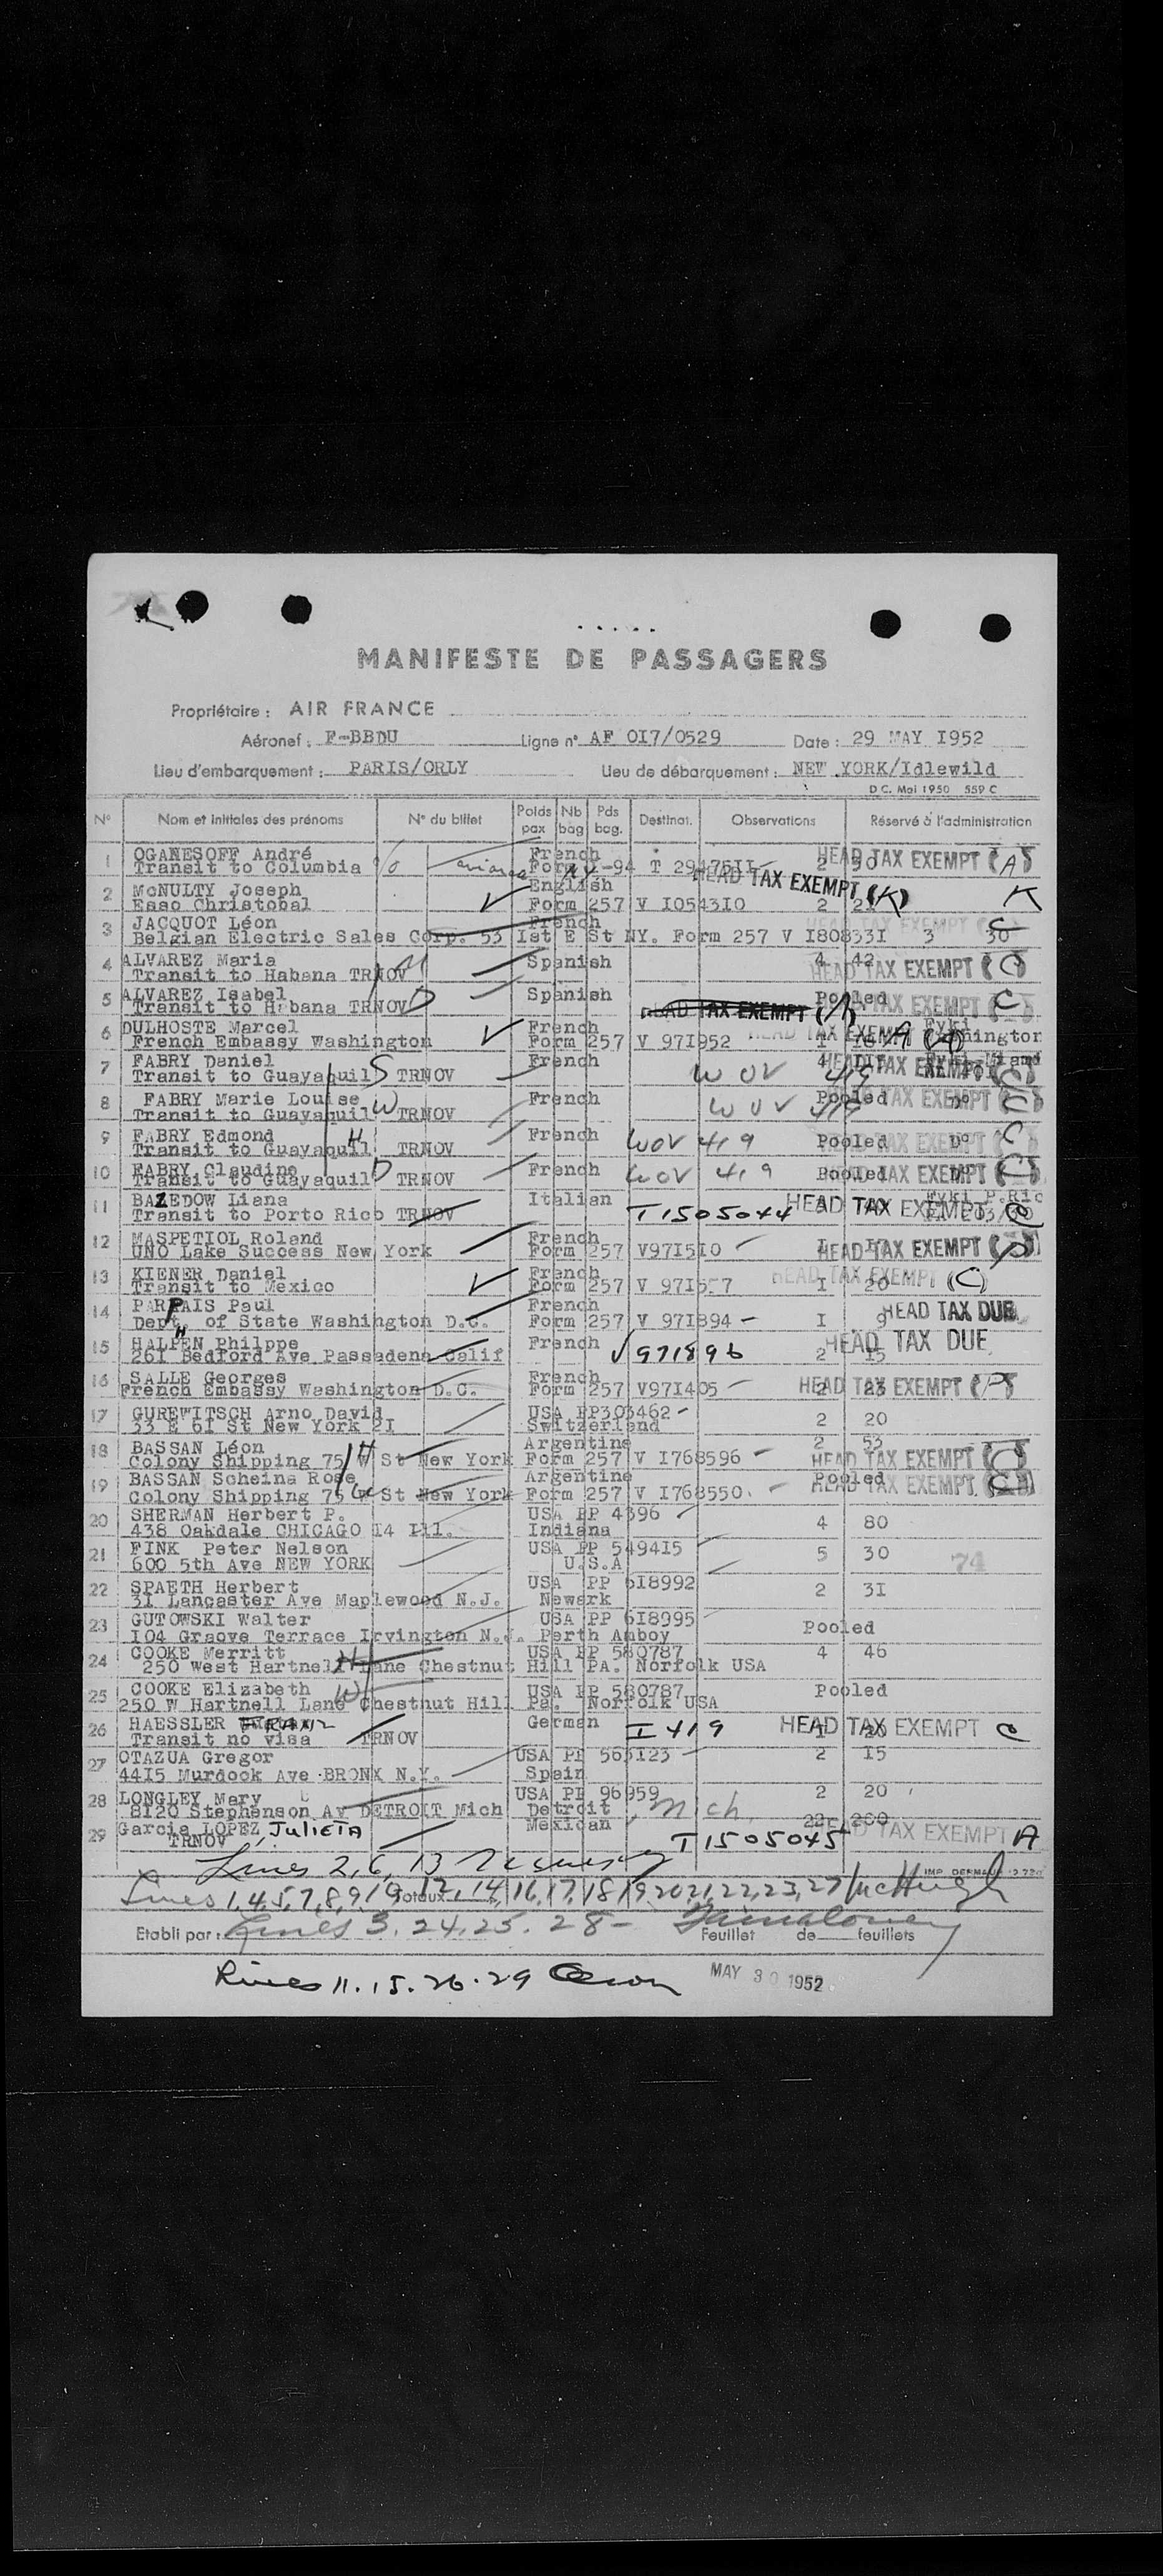 MANIFESTE DE PASSAGERS
Propriétaire : AIR FRANCE
Aéronef : F-BBDU Ligne n° AF OI7/0529 Date : 29 MAY I952
Lieu d'embarquement : PARIS/ORLY Lieu de débarquement : NEW YORK/Idlewild
D C. Mai 1950 559 C
N° Nom et initiales des prénoms N° du billet Poids pax Nb bag Pds bag. Destinat. Observations Réservé à l'administration
1 OGANESOFF André French
Transit to Columbia HEAD TAX EXEMPT (A)
2 McNULTY Joseph English HEAD TAX EXEMPT (K) K
Esso Christobal Form 257 V I0543I0 2
3 JACQUOT Léon French
Belgian Electric Sales Corp. 53 Ist E St NY. Form 257 V I80833I 3 30
4 ALVAREZ Maria Spanish 4 42
Transit to Habana TRNOV HEAD TAX EXEMPT (C)
5 ALVAREZ Isabel Spanish Pooled TAX EXEMPT C
Transit to Habana TRNOV HEAD TAX EXEMPT
6 DULHOSTE Marcel French
French Embassy Washington Form 257 V 97I952 HEAD TAX EXEMPT
7 FABRY Daniel French
Transit to Guayaquil S TRNOV WOV 419 HEAD TAX EXEMPT (C)
8 FABRY Marie Louise French Pooled TAX EXEMPT (C)
Transit to Guayaquil W TRNOV WOV 419
9 FABRY Edmond H French WOV 419 Pooled D° TAX EXEMPT C
Transit to Guayaquil TRNOV
10 FABRY Claudine D French WOV 419 Pooled TAX EXEMPT (C)
Transit to Guayaquil TRNOV
11 BAZEDOW Liana Italian
Transit to Porto Rico TRNOV T1505044 HEAD TAX EXEMPT C
12 MASPETIOL Roland French
UNO Lake Success New York Form 257 V97I5I0 HEAD TAX EXEMPT
13 KIENER Daniel French HEAD TAX EXEMPT (C)
Transit to Mexico Form 257 V I 20
14 Paul French HEAD TAX DUE
Dept. of State Washington D.C. Form 257 V 97I894 I 9
15 HALPHEN Philippe French HEAD TAX DUE
26I Bedford Ave Passadena Calif V 971896 2 I5
16 SALLE Georges French
French Embassy Washington D.C. Form 257 V97I405 2 23 HEAD TAX EXEMPT (P)
17 GUREWITSCH Arno David USA PP303462
33 E 6I St New York 2I Switzerland 2 20
18 BASSAN Léon H Argentine 2 53
Colony Shipping 75 W St New York Form 257 V I768596 HEAD TAX EXEMPT (C)
19 BASSAN Scheina Rose W Argentine Pooled
Colony Shipping 75 W St New York Form 257 V I768550 HEAD TAX EXEMPT
20 SHERMAN Herbert P. USA PP 4396
438 Oakdale CHICAGO I4 Ill. Indiana 4 80
21 FINK Peter Nelson USA PP 5494I5
600 5th Ave NEW YORK U.S.A 5 30 74
22 SPAETH Herbert USA PP 6I8992
3I Lancaster Ave Maplewood N.J. Newark 2 3I
23 GUTOWSKI Walter USA PP 6I8995
I04 Graove Terrace Irvington N.J. Perth Amboy Pooled
24 COOKE Merritt H USA PP 580787 4 46
250 West Hartnell Lane Chestnut Hill PA. Norfolk USA
25 COOKE Elizabeth W USA PP 580787 Pooled
250 W Hartnell Lane Chestnut Hill Pa. Norfolk USA
26 HAESSLER German I 419 HEAD TAX EXEMPT C
Transit no visa TRNOV
27 OTAZUA Gregor USA PP 2 I5
44I5 Murdock Ave BRONX N.Y. Spain
28 LONGLEY Mary USA PP 96959 2 20
8I20 Stephenson Av DETROIT Mich Detroit, Mich.
29 Garcia LOPEZ, JULIETA Mexican HEAD TAX EXEMPT A
TRNOV T1505045
Lines 2, 6, 13
Lines 1,4,5,7,8,9,10 Totaux 12, 14, 16, 17, 18, 19, 20, 21, 22, 23, 27 McHugh
Etabli par : Lines 3. 24. 25. 28 - Feuillet de feuillets
Lines 11. 15. 26. 29 MAY 30 1952